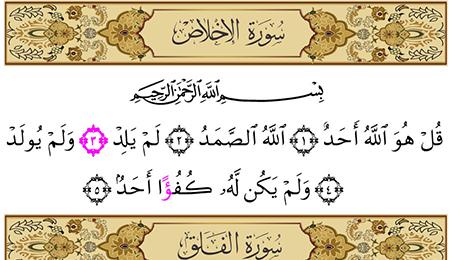 سُورَةُ الإِخْلَاصِ
بِسْمِ ٱللَّهِ ٱلرَّحْمَٰنِ ٱلرَّحِيمِ
قُلْ هُوَ ٱللَّهُ أَحَدٌ ﴿١﴾ ٱللَّهُ ٱلصَّمَدُ ﴿٢﴾ لَمْ يَلِدْ ﴿٣﴾ وَلَمْ يُولَدْ
﴿٤﴾ وَلَمْ يَكُن لَّهُۥ كُفُؤًا أَحَدٌۢ ﴿٥﴾
سُورَةُ الْفَلَقِ